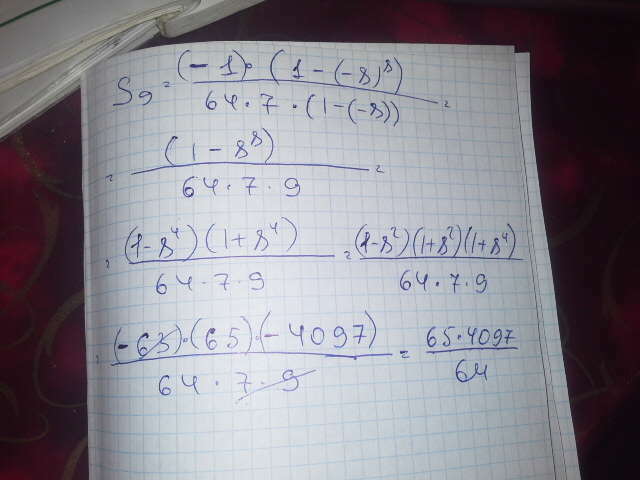 S9 = (-1)·(1-(-8)⁸) / 64·7·(1-(-8)) =
= (1-8⁸) / 64·7·9 =
= (1-8⁴)(1+8⁴) / 64·7·9 = (1-8²)(1+8²)(1+8⁴) / 64·7·9
= (-63)·(65)·(-4097) / 64·7·9 = 65·4097 / 64